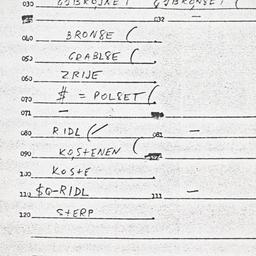 030 032 —
040 BRONSE (
050 GDABLSE (
060 ZRIJE
070 $ = POLSET (
071 —
080 RIDL ( 081 —
090 KOSTENEN (
100 KOSTE
110 $G-RIDL 111 —
120 STERP